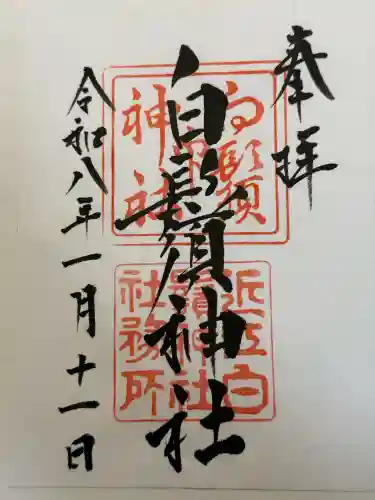 奉拝
白鬚神社
白鬚
神社
近江白
鬚神社
社務所
令和八年一月十一日